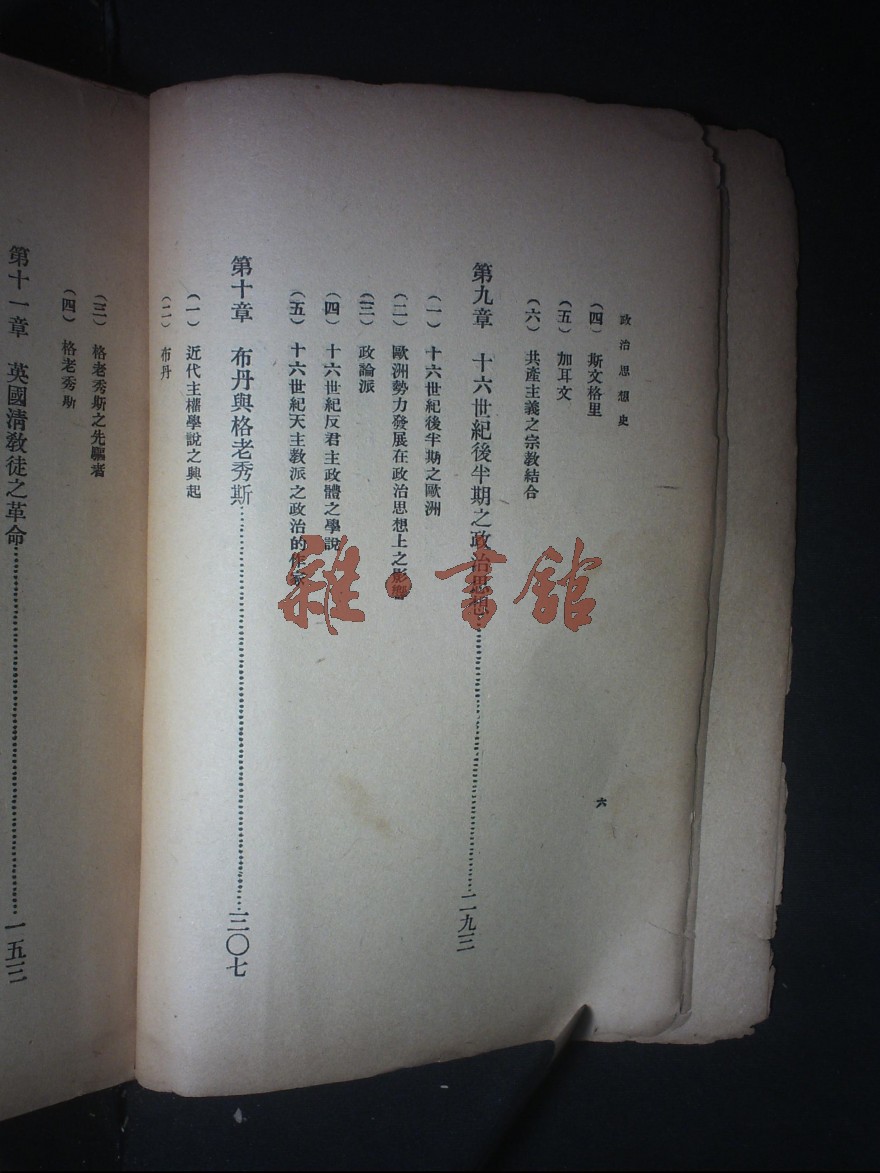 政治思想史
六
(四) 斯文格里
(五) 加耳文
(六) 共產主義之宗教結合
第九章 十六世紀後半期之政治思想……二九三
(一) 十六世紀後半期之歐洲
(二) 歐洲勢力發展在政治思想上之影響
(三) 政論派
(四) 十六世紀反君主政體之學說
(五) 十六世紀天主教派之政治的作家
第十章 布丹與格老秀斯……三〇七
(一) 近代主權學說之興起
(二) 布丹
(三) 格老秀斯之先驅者
(四) 格老秀斯
第十一章 英國清教徒之革命……一五三
雜·書館